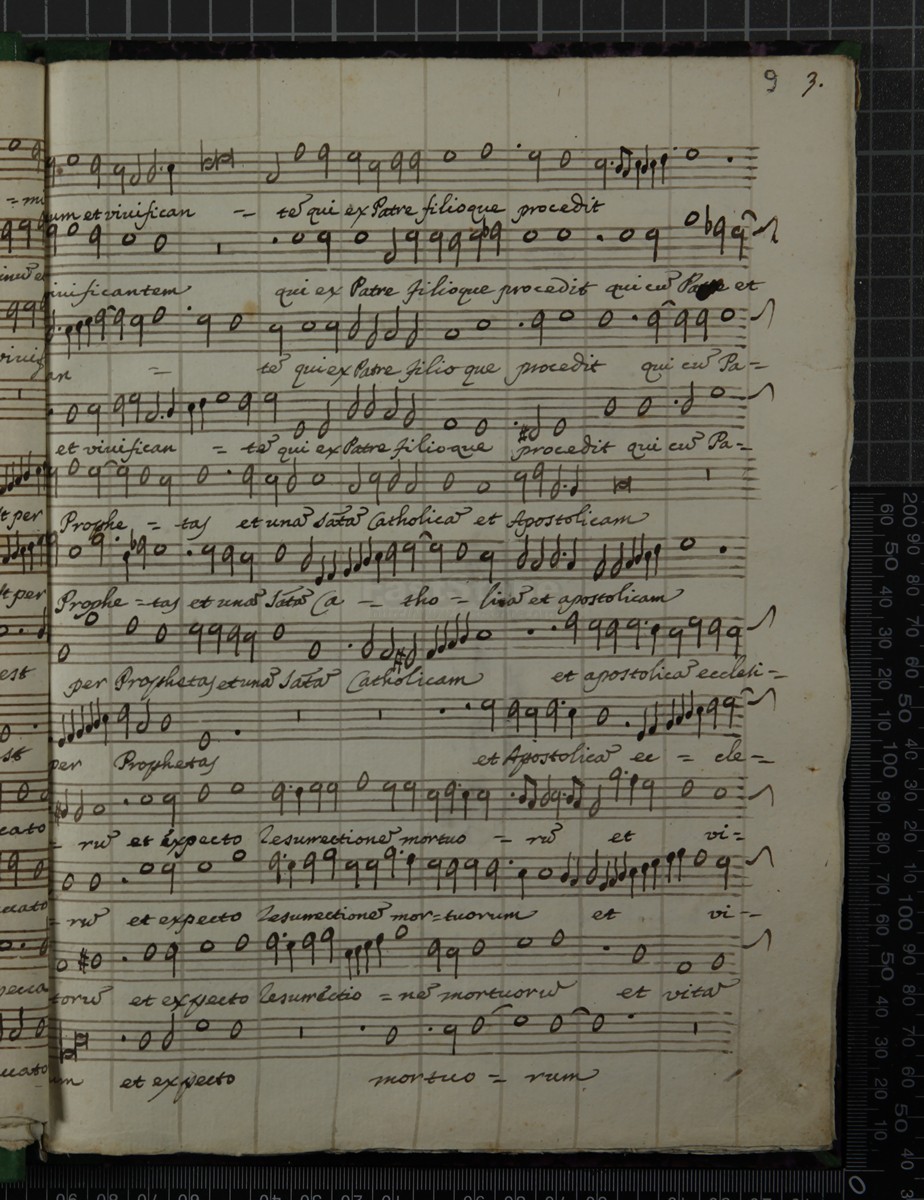 9 3.
um et vivifican = tē qui ex Patre filioque procedit
ivificantem qui ex Patre filioque procedit qui cū et
an = tē qui ex Patre filio que procedit qui cū Pa=
et vivifican = tē qui ex Patre filioque procedit qui cū Pa=
Prophe = tas et unā Sātā Catholicā et Apostolicam
Prophe = tas et unā Sātā Ca = tho = licā et apostolicam
per Prophetas et unā Sātā Catholicam et apostolicā ecclesi=
per Prophetas et Apostolicā ec = cle=
= rū et expecto Resurrectionē mortuo = rū et vi=
= rū et expecto Resurrectionē mor=tuorum et vi=
torū et expecto Resurrectio = nē mortuorū et vitā
um et expecto mortuo = rum